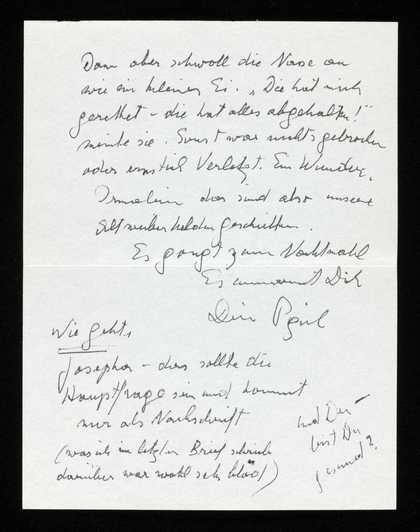 Dann aber schwoll die Nase an
wie ein kleines Ei. „Die hat mich
gerettet – die hat alles abgehalten!"
meinte sie. Sonst war nichts gebrochen
oder ernstlich verletzt. Ein Wunder.
das sind also unsere
Altweiberheldengeschichten.
Es gongt zum Nachtmahl
Es umarmt Dich
Dein
Wie gehts
Josepha – das sollte die
Hauptfrage sein und kommt
nur als Nachschrift
(was ich im letzten Brief schrieb
darüber war wohl sehr blöd)
und Du –
bist Du
gesund?